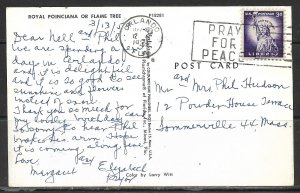 ROYAL POINCIANA OR FLAME TREE
3/13/5
Dear Nell and Phil
We are spending a few
days in Orlando
and it is delightful
and it is so good to see
sunshine and flowers
instead of snow.
Thank you so much for
your lovely birthday card
so sorry to hear Phil
broke his arm. Hope
it is coming along fine
Love
Margaret and Elizabeth
ORLANDO
PRAY
FOR
PEACE
LIBERTY
3¢
POST CARD
Mr and Mrs Phil Hudson
12 Powder House Terrace
Sommerville 44 Mass.
Color by Larry Witt